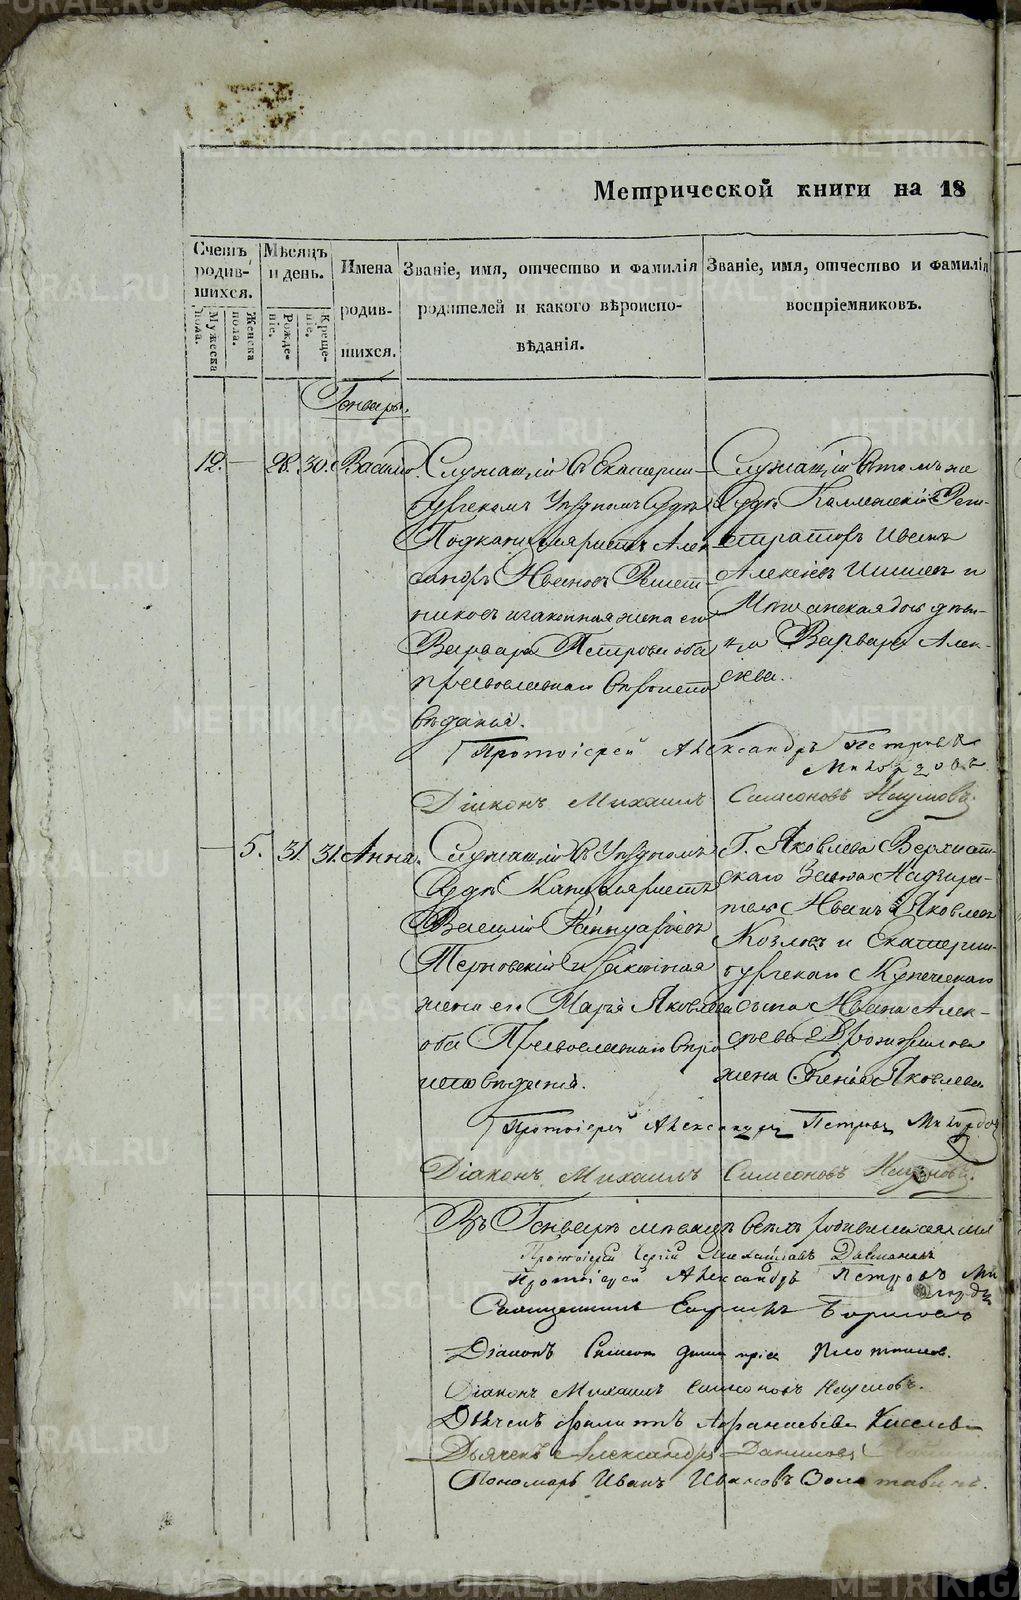 METRIKI.GASO-URAL.RU
Метрической книги на 18
Счетъ родив-шихся.
Мужеска пола.
Женска пола.
Мѣсяцъ и день.
Рожде-ніе.
Креще-ніе.
Имена родив-шихся.
Званіе, имя, отчество и фамилія родителей и какого вѣроиспо-вѣданія.
Званіе, имя, отчество и фамилія воспріемниковъ.
Генварь.
12. — 28. 30. Василій.
Служащій въ Екатерин-
бургскомъ Уѣздномъ Судѣ
Подканцеляристъ Алек
сандръ Ивановъ Решет
никовъ и законная жена его
Варвара Петрова оба
православнаго вѣроиспо
вѣданія.
Служащій въ томъ же
Судѣ Коллежскій Реги-
страторъ Иванъ
Алексѣевъ Шишевъ и
Мѣщанская дочь дѣви-
ца Варвара Алек-
сѣева.
Протоіерей Александръ Петровъ
Діаконъ Михаилъ Симеоновъ Наумовъ.
— 5. 31. 31. Анна.
Служащій въ Уѣздномъ
Судѣ Канцеляристъ
Василій Іаннуаріевъ
Терновскій и законная
жена его Марья Яковлева
оба Православнаго вѣро
исповѣданія.
Г. Яковлева Верхисет-
скаго Завода Надзира-
тель Иванъ Яковлевъ
Козловъ и Екатерин-
бургскаго Купеческаго
сына Ивана Алек-
сѣева
жена Яковлева
Протоіерей Александръ Петровъ
Діаконъ Михаилъ Симеоновъ Наумовъ.
Въ Генварѣ мѣсяцѣ всѣхъ родившихся
Протоіерей Сергій
Протоіерей Александръ Петровъ
Священникъ
Діаконъ Симеон Плотников.
Діаконъ Михаилъ Симеоновъ Наумовъ.
Дьячекъ Филиппъ Афанасьевъ Киселев
Дьячекъ Александръ Данилов
Пономарь Иванъ Ивановъ Золотавинъ.